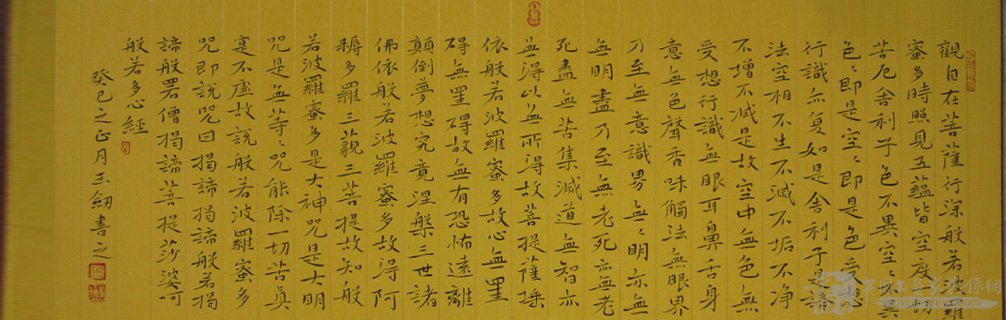 觀自在菩薩行深般若波羅
蜜多時照見五蘊皆空度一切
苦厄舍利子色不異空〻不異
色〻即是空〻即是色受想
行識亦复如是舍利子是諸
法空相不生不滅不垢不净
不增不減是故空中無色無
受想行識無眼耳鼻舌身
意無色聲香味觸法無眼界
乃至無意識界無〻明亦無
無明盡乃至無老死亦無老
死盡無苦集滅道無智亦
無得以無所得故菩提薩埵
依般若波羅蜜多故心無罣
碍無罣碍故無有恐怖遠離
顛倒夢想究竟涅槃三世諸
佛依般若波羅蜜多故得阿
耨多羅三藐三菩提故知般
若波羅蜜多是大神咒是大明
咒是無等〻咒能除一切苦真
實不虛故說般若波羅蜜多
咒即說咒曰揭諦揭諦般若揭
諦般若僧揭諦菩提莎婆呵
般若多心經
癸巳之正月玉釰書之